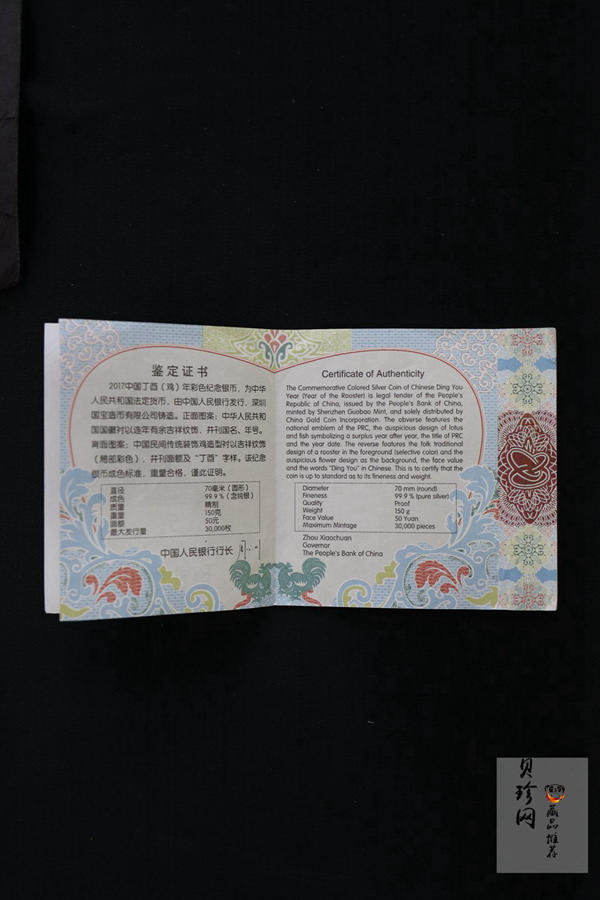 鉴定证书
2017中国丁酉（鸡）年彩色纪念银币，为中华
人民共和国法定货币，由中国人民银行发行，深圳
国宝造币有限公司铸造。正面图案：中华人民共和
国国徽衬以连年有余吉祥纹饰，并刊国名、年号。
背面图案：中国民间传统装饰鸡造型衬以吉祥纹饰
（局部彩色），并刊面额及“丁酉”字样。该纪念
银币成色标准，重量合格，谨此证明。
直径 70毫米（圆形）
成色 99.9％（含纯银）
质量 精制
重量 150克
面额 50元
最大发行量 30,000枚
中国人民银行行长
Certificate of Authenticity
The Commemorative Colored Silver Coin of Chinese Ding You
Year (Year of the Rooster) is legal tender of the People's
Republic of China, issued by the People's Bank of China,
minted by Shenzhen Guobao Mint, and solely distributed by
China Gold Coin Incorporation. The obverse features the
national emblem of the PRC, the auspicious design of lotus
and fish symbolizing a surplus year after year, the title of PRC
and the year date. The reverse features the folk traditional
design of a rooster in the foreground (selective color) and the
auspicious flower design as the background, the face value
and the words "Ding You" in Chinese. This is to certify that the
coin is up to standard as to its fineness and weight.
Diameter 70 mm (round)
Fineness 99.9 % (pure silver)
Quality Proof
Weight 150 g
Face Value 50 Yuan
Maximum Mintage 30,000 pieces
Zhou Xiaochuan
Governor
The People's Bank of China
贝珍网
藏品推荐